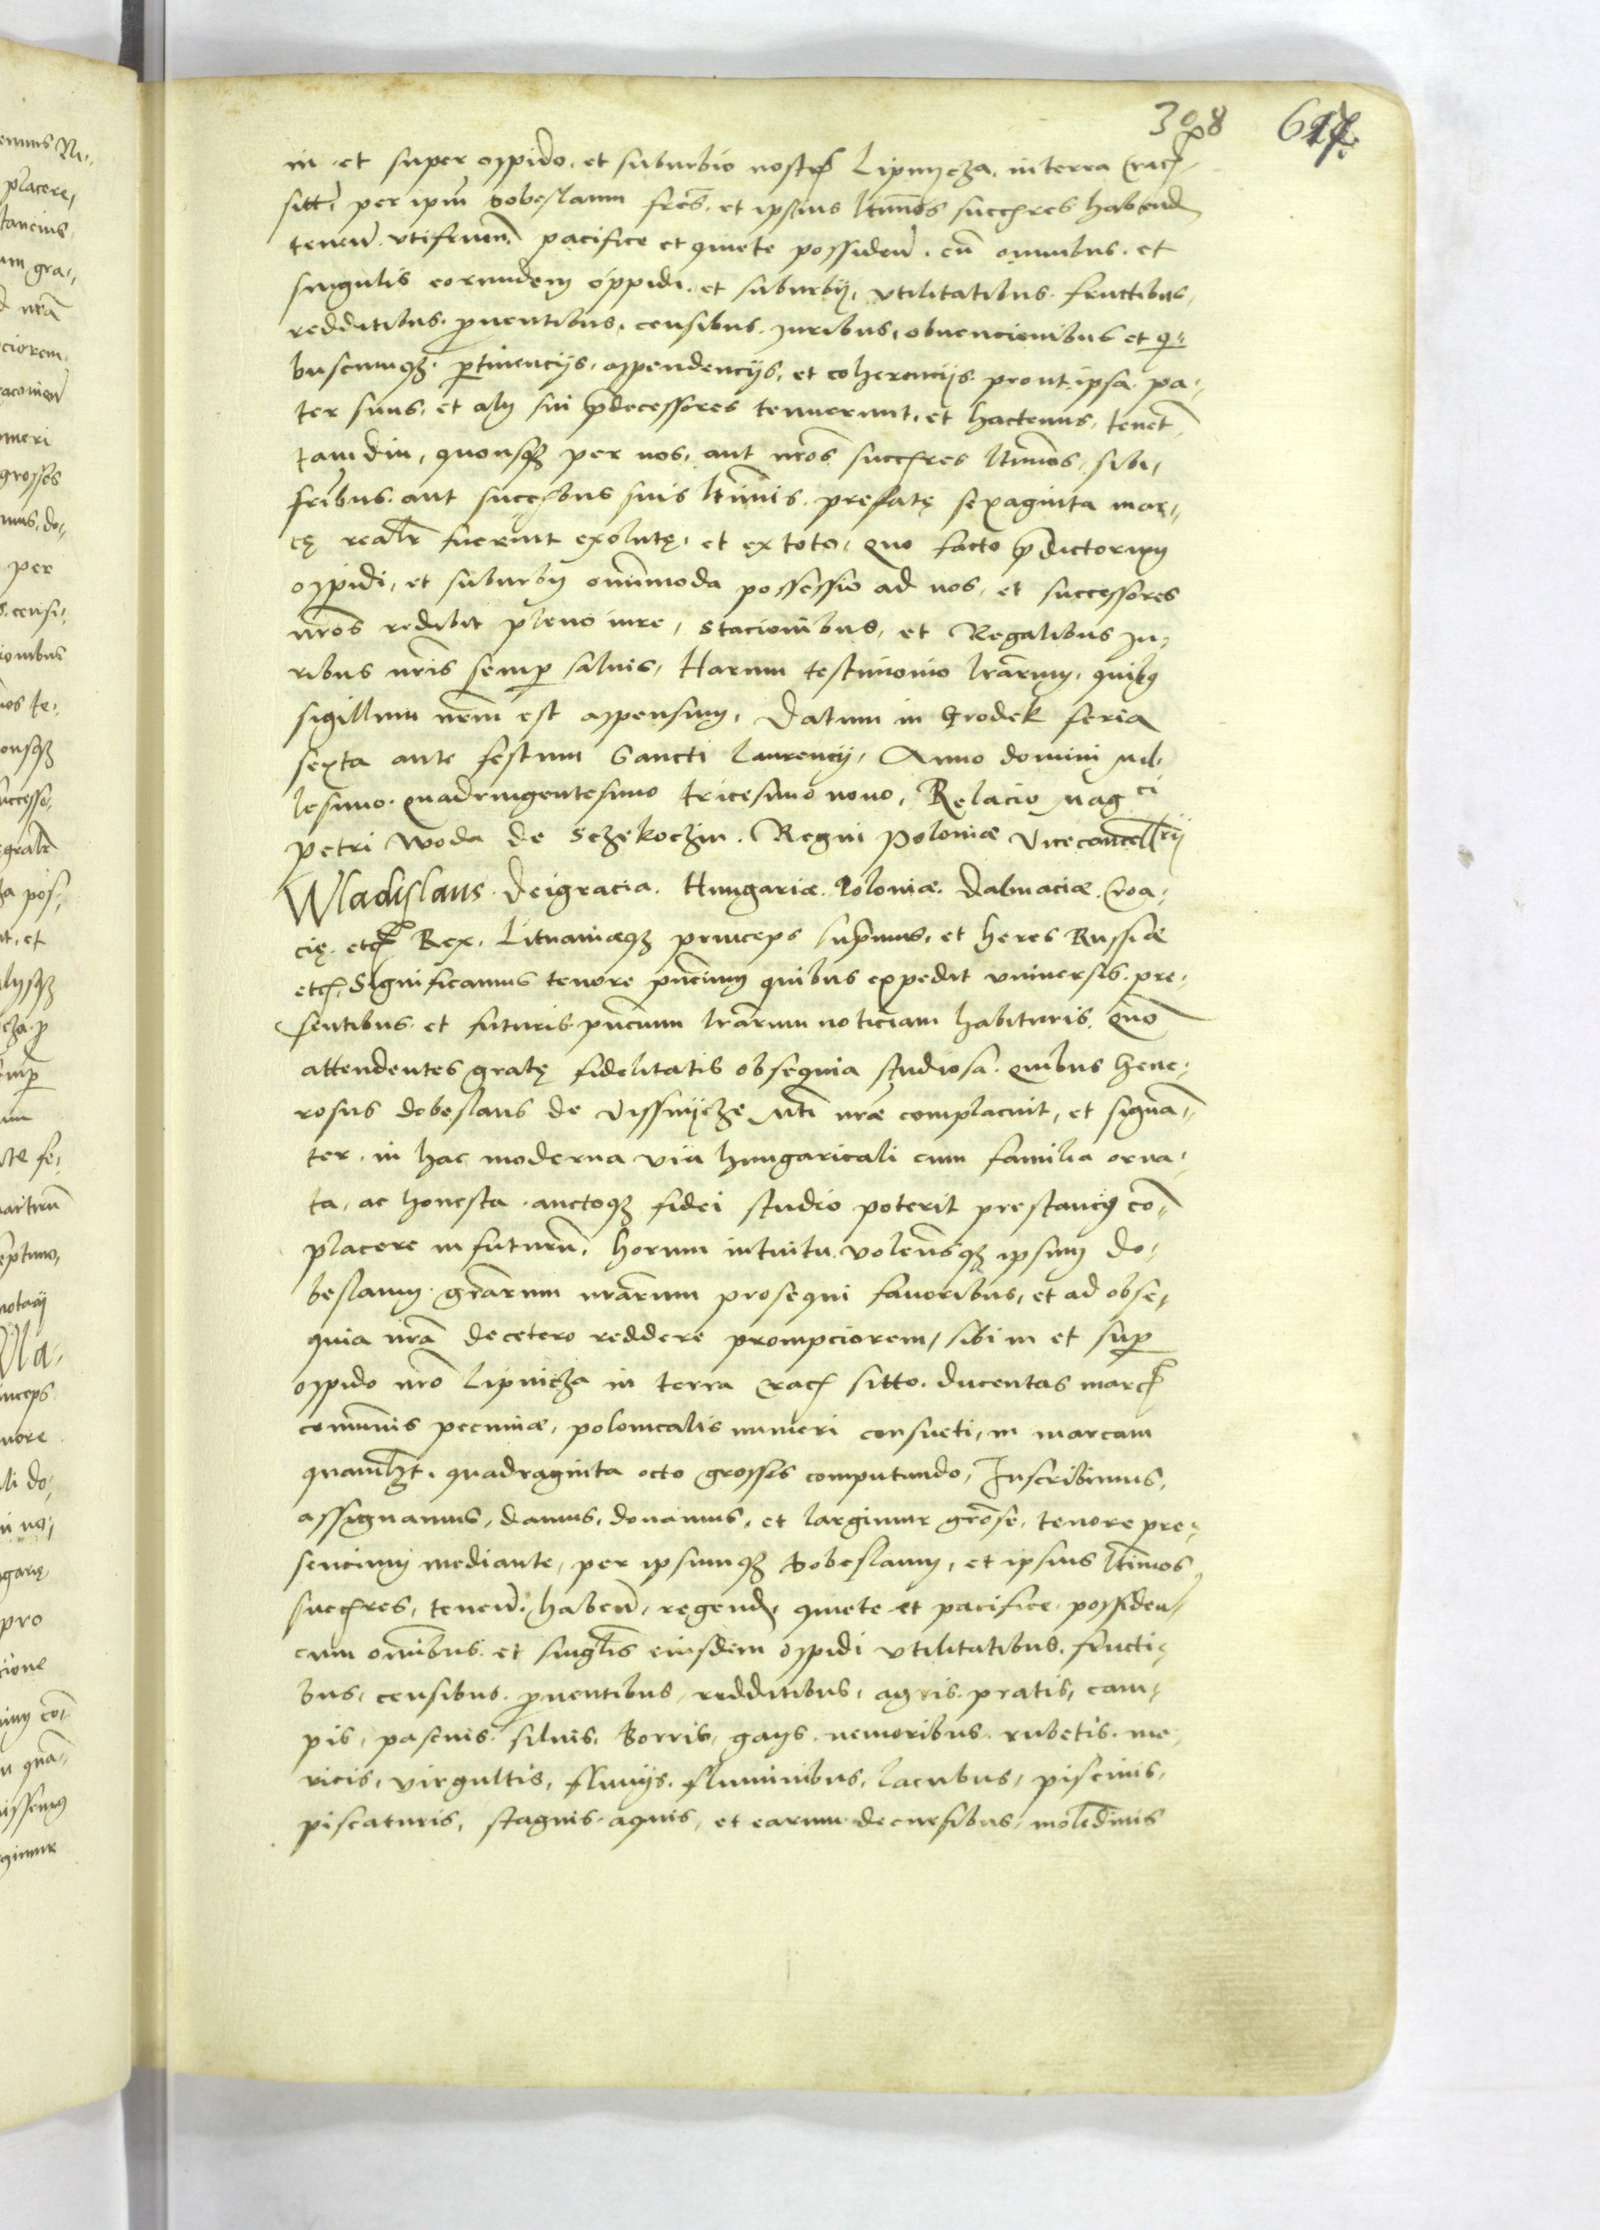 308 617.
in et super oppido, et suburbio nostro Lipnycza, in terra Crac̄
sitt̄, per ipm̄ Dobeslaum fres̄, et ipsius ltimos succ̄res habend
tenen̄ utifruen̄ pacifice et quiete possiden̄, cu̅ omnibus et
singulis eorundem oppidi et suburbij, utilitatibus fructibus,
redditibus, ꝓuentibus, censibus, juribus, obuencionibus et qi-
buscumqꝫ ꝑtinencijs, appendencijs, et coherencijs prout ipsa pa-
ter suus, et alij sui p̄decessores tenuerunt, et hactenus, tenet
tam diu, quousqꝫ per nos, aut nr̄os succ̄res ltimos, sibi,
fribus aut succ̄ibus suis ltimis prefatę sexaginta mar-
cę realr̄ fuerint exolutę, et ex toto, quo facto p̄dictorum
oppidi, et suburbij omnimoda possessio ad nos, et successores
nr̄os redibit pleno iure, stacionibus, et Regalibus Ju-
ribus nr̄is semꝑ saluis, Harum testimonio lr̄arum, quibꝯ
sigillum nr̄m est appensum, Datum in Grodek feria
sexta ante festum Sancti Laurencij, Anno domini Mil-
lesimo quadringentesimo tricesimo nono, Relacio Magci
Petri Woda de Sczekoczin Regni Poloniæ Vicecancellrij
Wladislaus Deigracia Hungariæ Poloniæ Dalmaciæ Croa-
cię etc̄ Rex, Lituaniæqꝫ princeps sup̄mus, et heres Russiæ
etc̄, Significamus tenore pn̄cium quibus expedit uniuersis pre-
sentibus et futuris pn̄cium lr̄arum noticiam habituris, Quo̅
attendentes gratę fidelitatis obsequia studiosa quibus Gene-
rosus Dobeslaus de Vissnijcze Mti nr̄æ complacuit, et signa̅-
ter in hac moderna via hungaricali cum familia orna-
ta, ac honesta auctoqꝫ fidei studio poterit prestanciꝯ co̅-
placere in futuru̅, horum intuitu volen̄sqꝫ ipsum Do-
beslaum gr̄arum nr̄arum prosequi fauoribus, et ad obse-
quia nr̄a de cetero reddere prompciorem, sibi in et suꝑ
oppido nr̄o Lipnicza in terra Crac̄ sitto, ducentas marc̄
comunis pecuniæ, polonicalis numeri consueti, in marcam
quamlꝫt, quadraginta octo grosses computando, Inscribimus,
assignamus, damus, donamus, et largimur grōse, tenore pre-
sencium mediante, per ipsumqꝫ Dobeslaum, et ipsius ltimos
succ̄res, tenen̄, haben̄, regend, quiete et pacifice possiden̄
cum omnibus et singlis eiusdem oppidi utilitatibus, fructi-
bus, censibus, ꝓuentibus, redditibus, agris, pratis, cam-
pis, pascuis, siluis, borris, gays, nemoribus, rubetis, me-
ricis, virgultis, fluuijs, fluminibus, lacubus, piscinis,
piscaturis, stagnis, aquis, et earum decursibus, moledinis